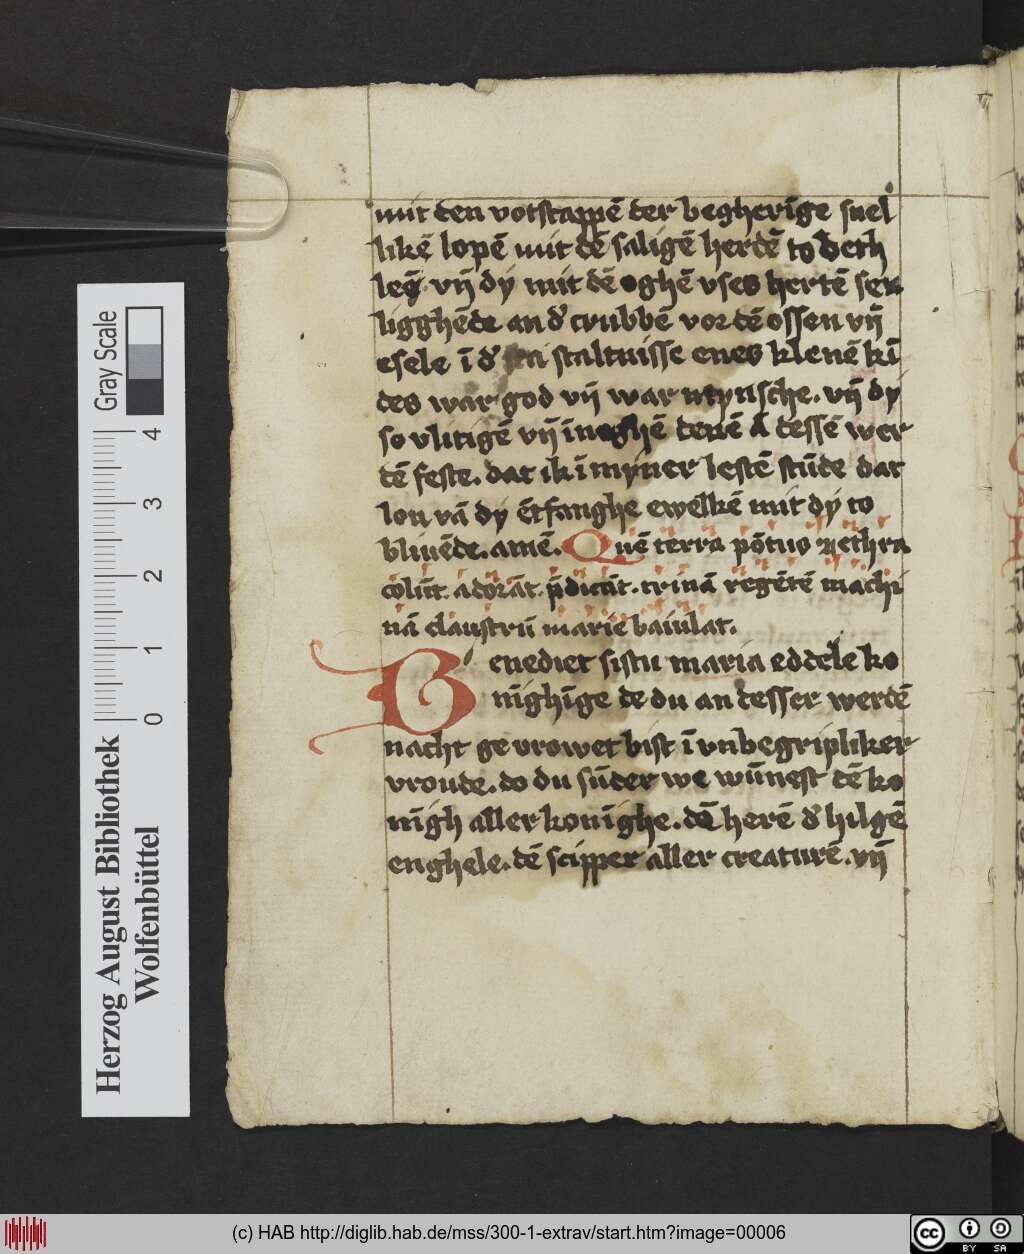 mit den votstappē der begherīge snel
likē lopē mit dē saligē herdē to beth
leē vn̄ dy mit dē oghē vses hertē seen
ligghēde an d' crubbē vor dē ossen vn̄
esele ī d' staltnisse enes klenē kī
des war god vn̄ war mynsche. vn̄ dy
so vlitigē vn̄ īneghē denē ā dessē wer
dē feste. dat ik ī myner lestē stūde dat
lon vā dy ētfanghe ewelkē mit dy to
bliuēde. amē. Quē terra pōtus ethra
cōlūt adorāt p̄dicāt. trinā regētē machi
nā claustrū marie baiulat.
Benediet sistu maria eddele ko
nīghīge de du an desser werdē
nacht gevrowet bist ī vnbegripliker
vroude. do du sūder we wūnest dē ko
nīgh aller konīghe. dē herē d' hilgē
enghele. dē scipper aller creaturē. vn̄
Gray Scale
0 1 2 3 4
Herzog August Bibliothek
Wolfenbüttel
(c) HAB http://diglib.hab.de/mss/300-1-extrav/start.htm?image=00006
cc BY SA